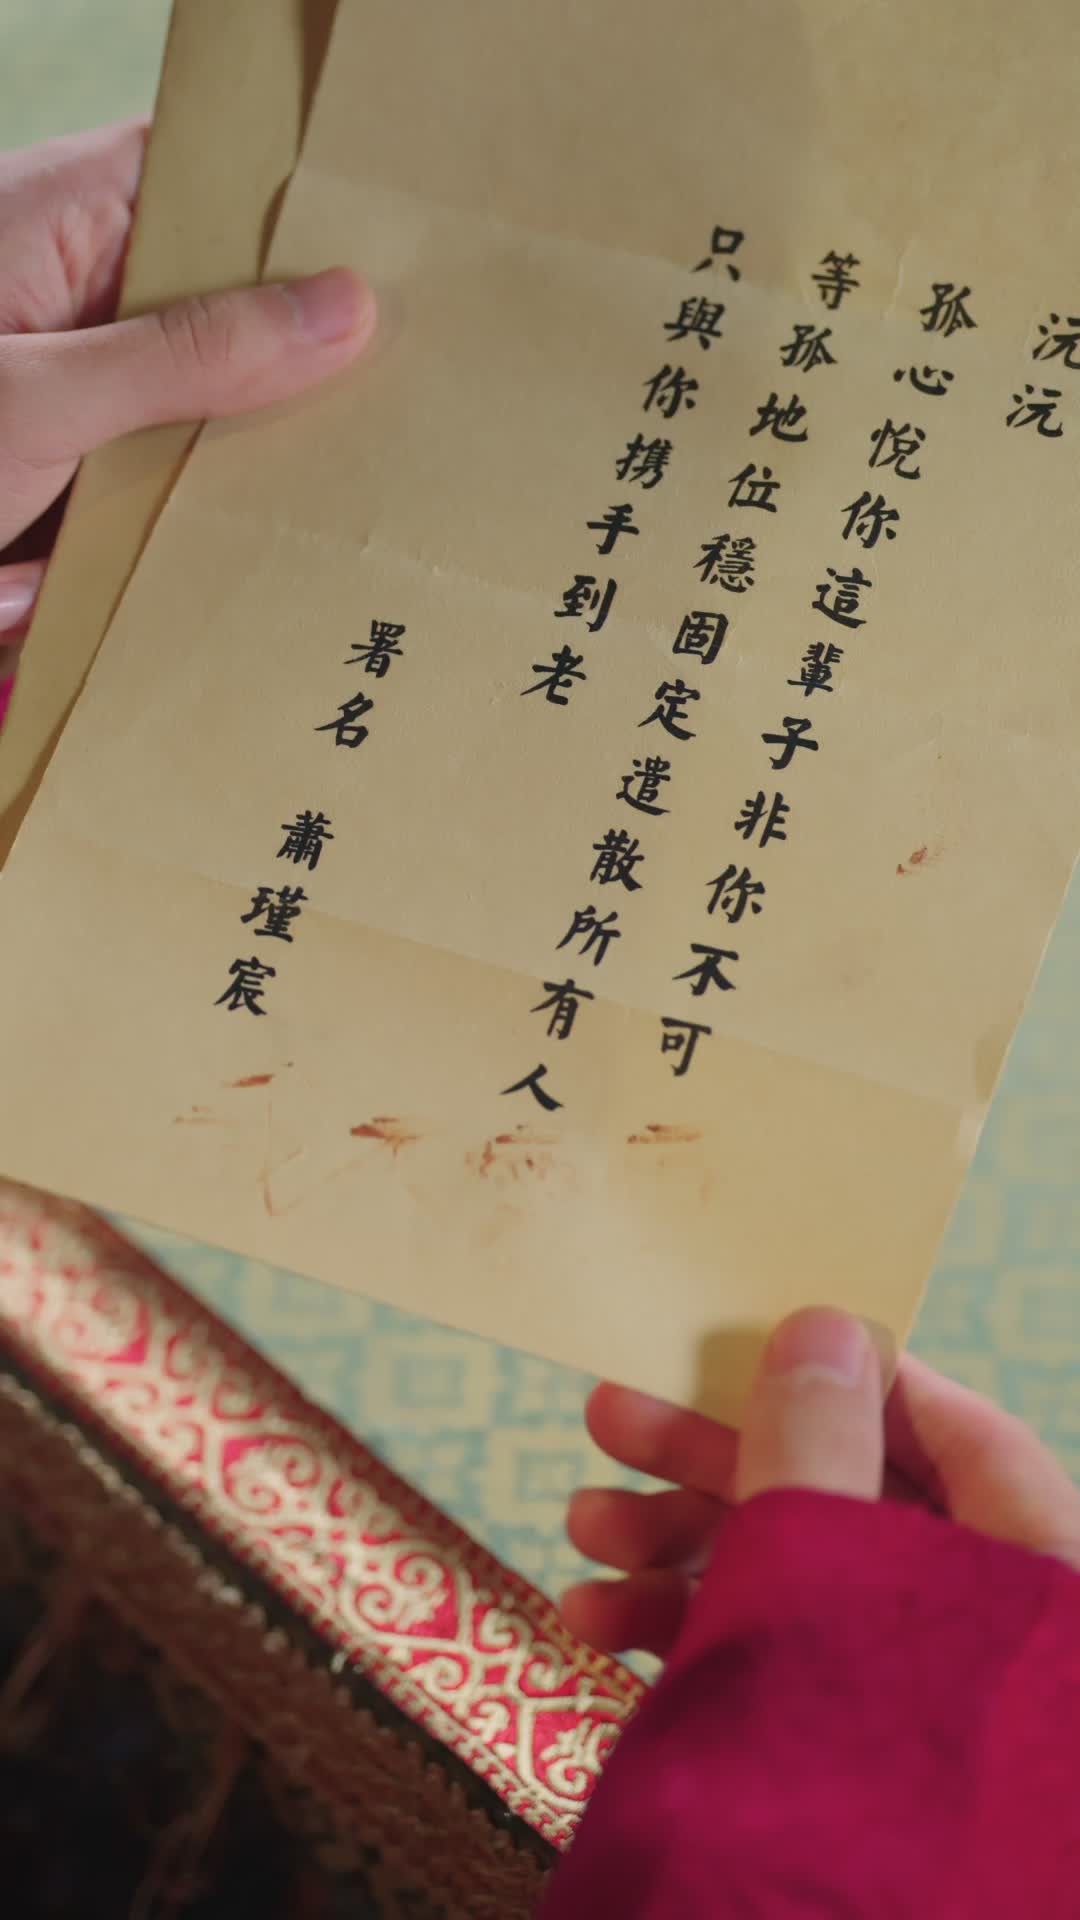 沅沅
孤心悅你這輩子非你不可
等孤地位穩固定遣散所有人
只與你携手到老
署名 蕭瑾宸